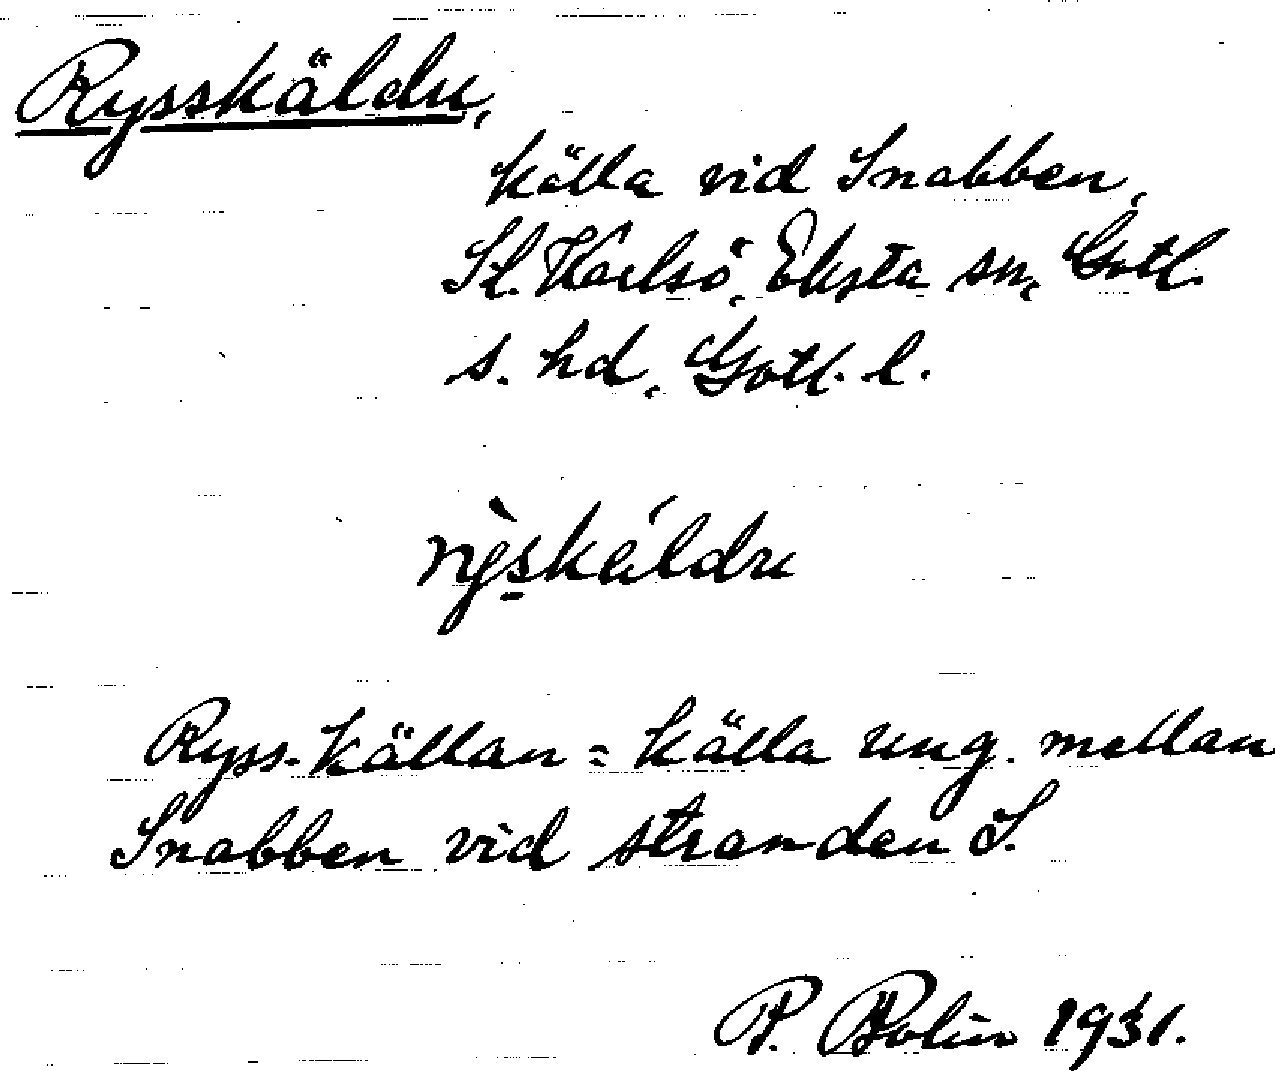 Rysskäldu,
källa vid Snabben,
St. Karlsö, Eksta sn, Gotl.
s. hd, Gotl. l.
rỳskáldu
Ryss-källan = källa ung. mellan
Snabben vid stranden S.
P. Bolin 1931.